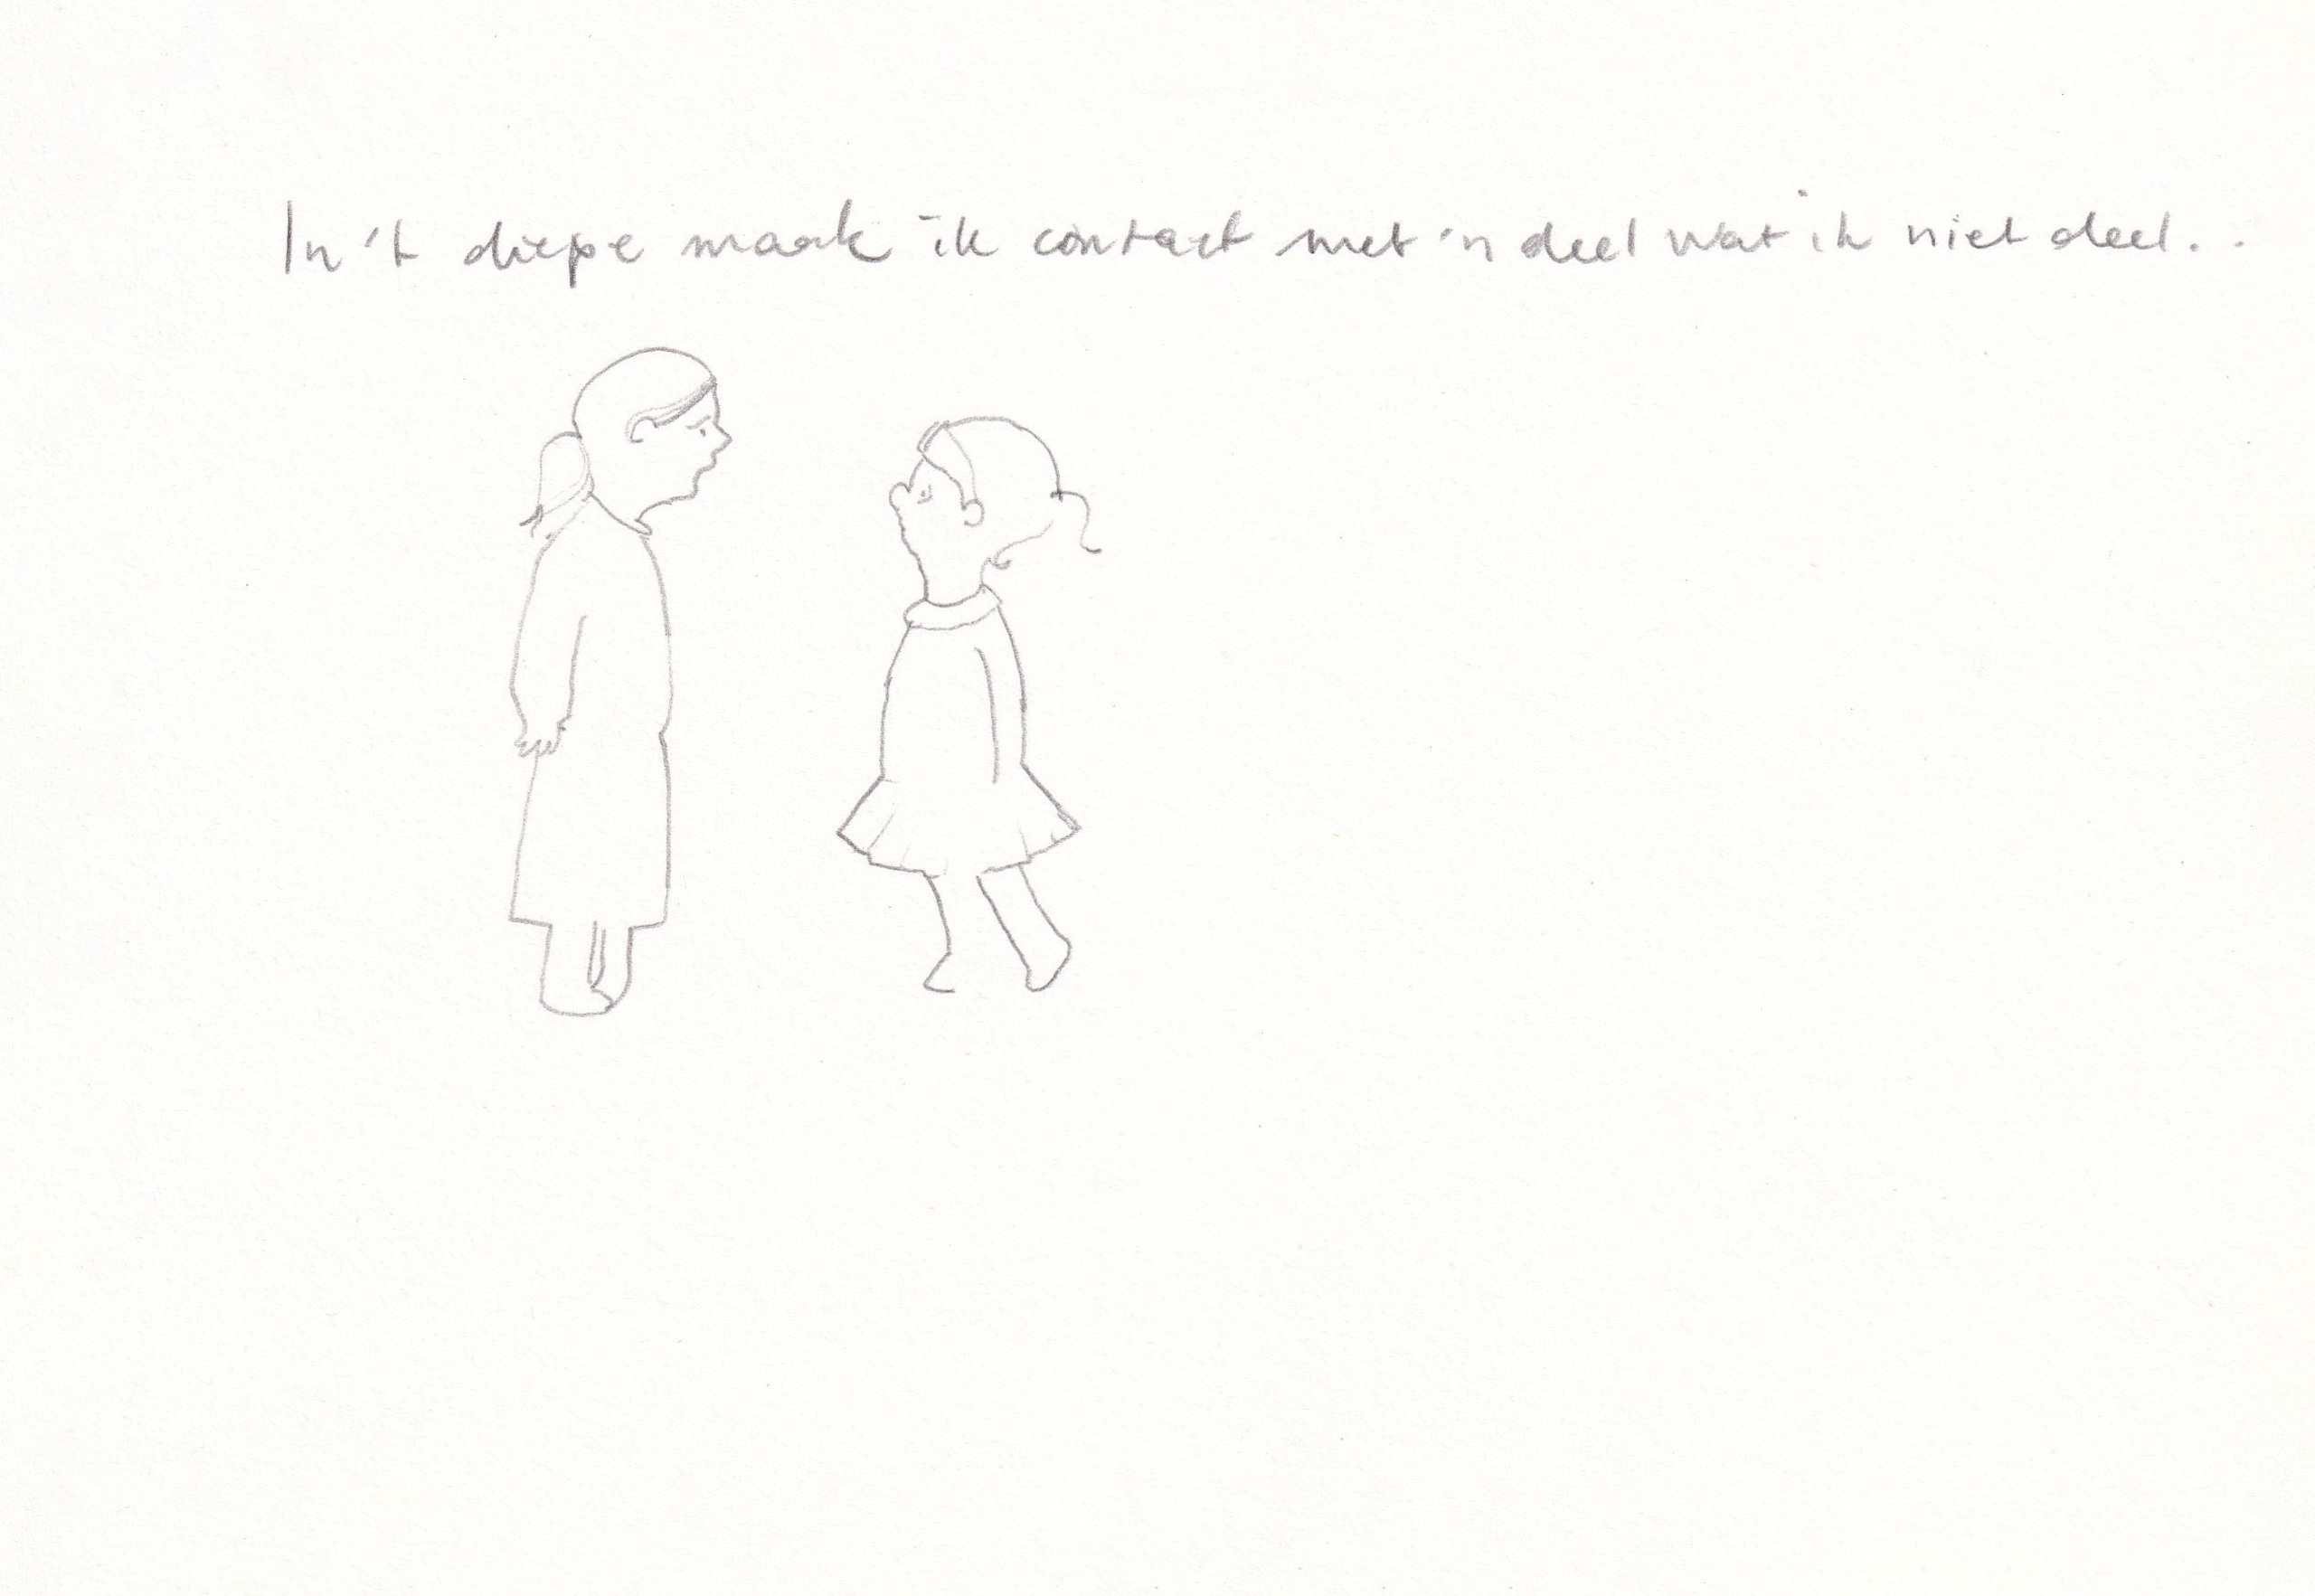 In 't diepe maak ik contact met 'n deel wat ik niet deel..